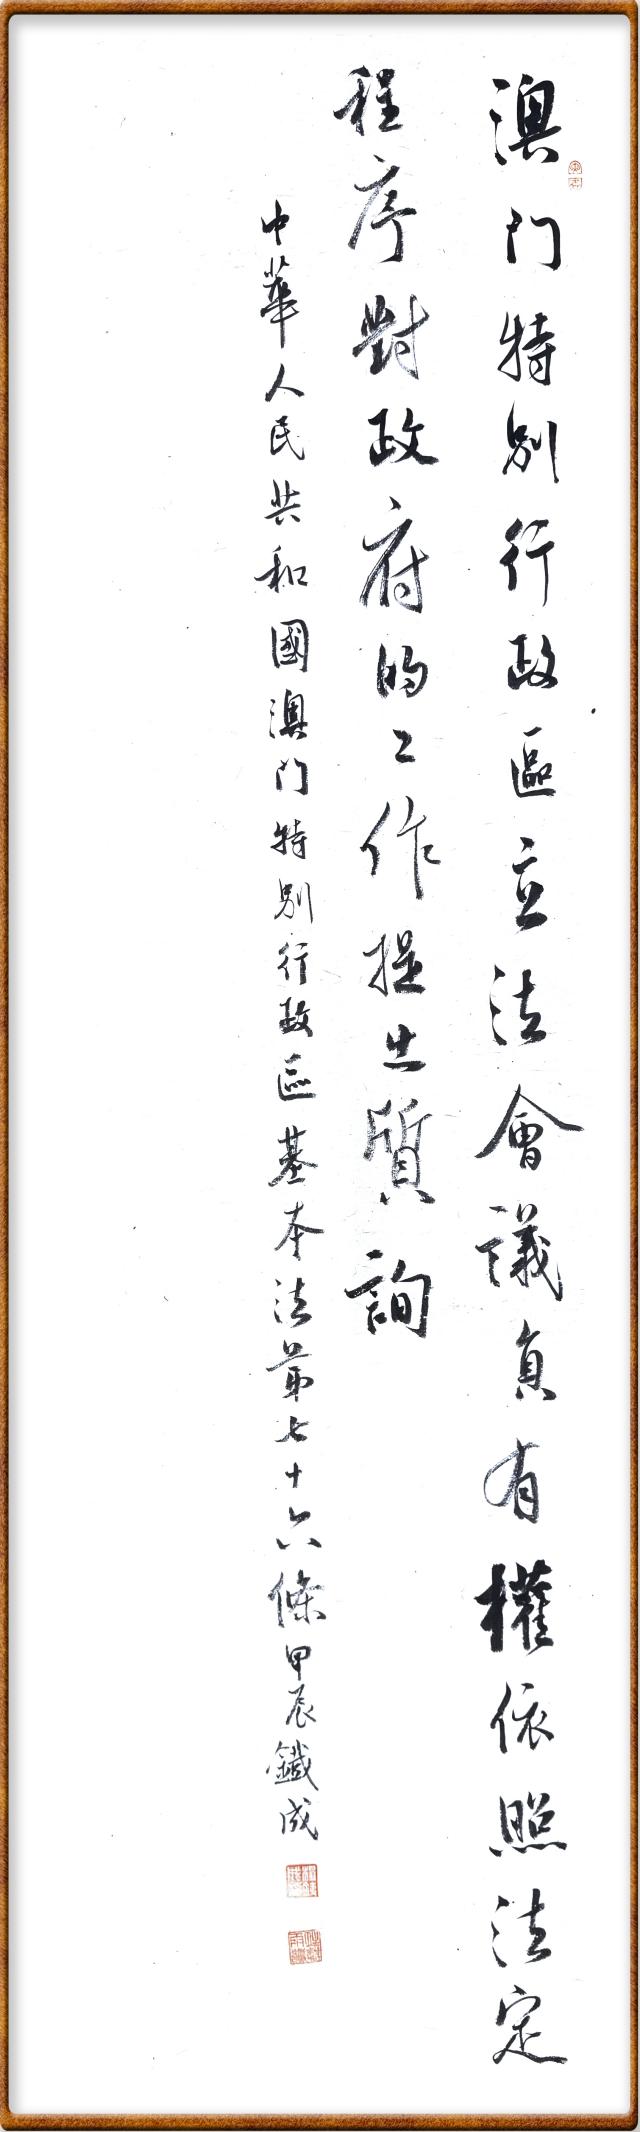 澳門特別行政區立法會議員有權依照法定
程序對政府的工作提出質詢
中華人民共和國澳門特別行政區基本法第七十六條甲辰鐵成